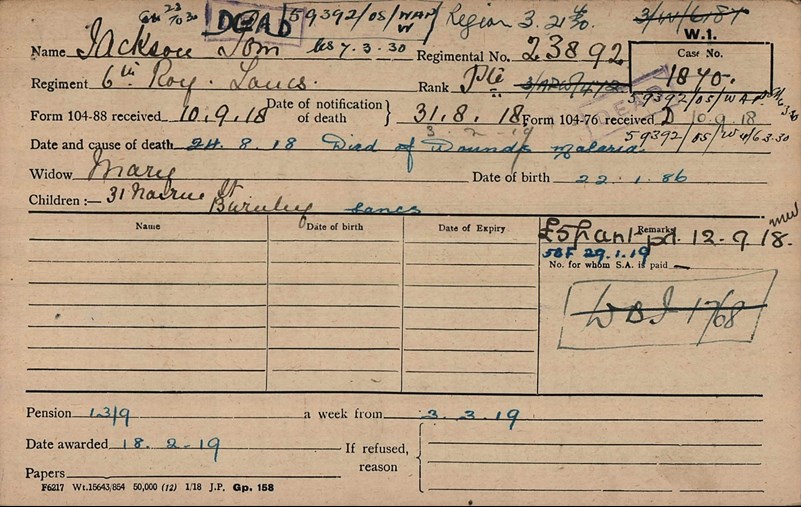 DEAD 59392/OS/WAP/W Region 3. 3/W/6/87
W.1.
Name Jackson Tom 7.3.30 Regimental No. 23892 Case No.
Regiment 6th Roy. Lancs. Rank Pte 1840.
59392/OS/WAP
Form 104-88 received 10.9.18 Date of notification of death } 31.8.18 Form 104-76 received D 10.9.18
3.2.19 59392/OS/W 6.3.30
Date and cause of death 24.8.18 Died of Wounds malaria
Widow Mary Date of birth 22.1.86
Children :— 31 Nairne St
Burnley Lancs
Name Date of birth Date of Expiry Remarks
£5 Grant pd. 12.9.18.
5BF 29.1.19
No. for whom S.A. is paid —
WBI 1768
Pension 13/9 a week from 3.3.19
Date awarded 18.2-19 If refused, reason {
Papers
F6217 Wt.15643/854 50,000 (12) 1/18 J.P. Gp. 158